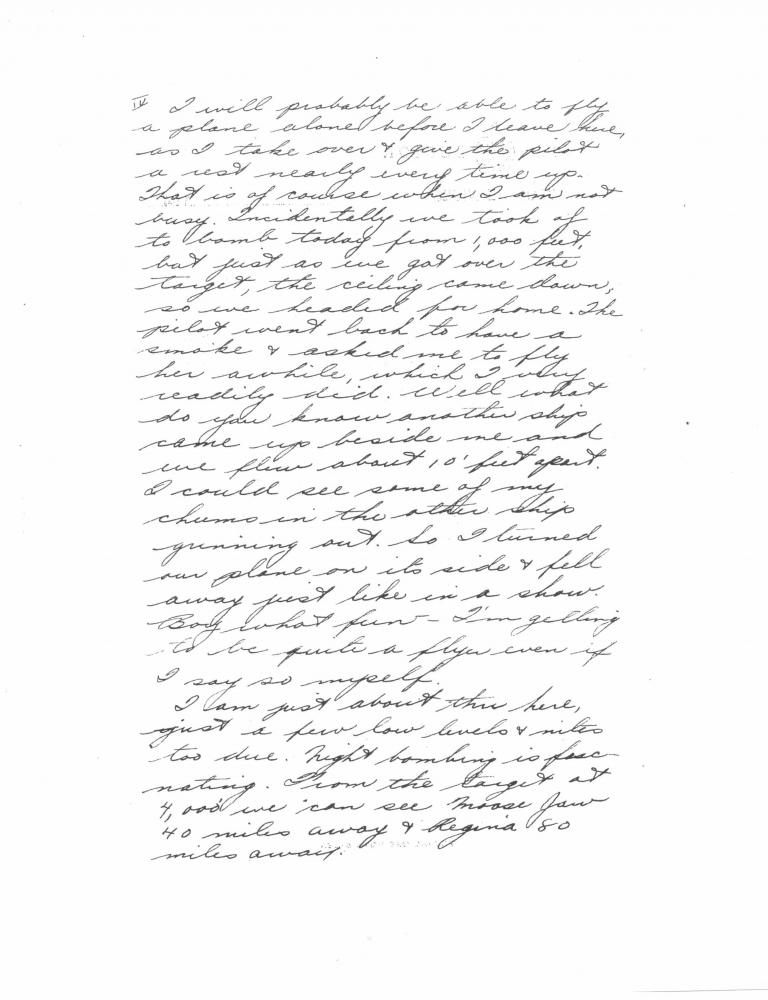 IV I will probably be able to fly
a plane alone before I leave here,
as I take over & give the pilot
a rest nearly every time up.
That is of course when I am not
busy. Incidentally we took of
to bomb today from 1,000 feet,
but just as we got over the
target, the ceiling came down,
so we headed for home. The
pilot went back to have a
smoke & asked me to fly
her awhile, which I very
readily did. Well what
do you know another ship
came up beside me and
we flew about 10' feet apart.
I could see some of my
chums in the other ship
grinning out. So I turned
our plane on its side & fell
away just like in a show.
Boy what fun - I'm getting
to be quite a flyer even if
I say so myself.
I am just about thru here,
just a few low levels & nites
too due. Night bombing is fasc-
nating. From the target at
4,000' we can see Moose Jaw
40 miles away & Regina 80
miles away.